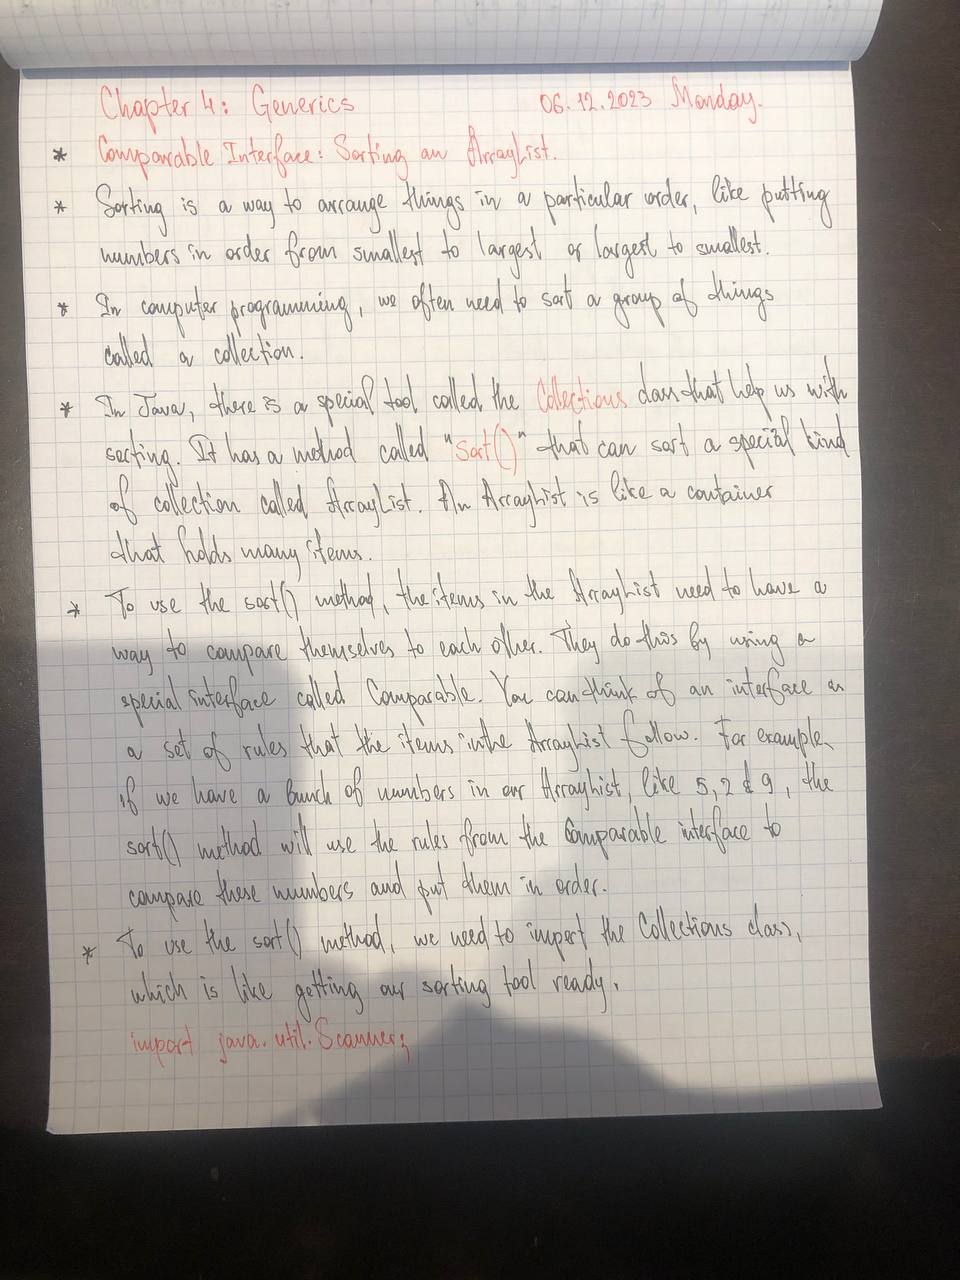 Chapter 4: Generics 06.12.2023 Monday.
* Comparable Interface: Sorting an ArrayList.
* Sorting is a way to arrange things in a particular order, like putting
numbers in order from smallest to largest or largest to smallest.
* In computer programming, we often need to sort a group of things
called a collection.
* In Java, there is a special tool called the Collections class that help us with
sorting. It has a method called "Sort()" that can sort a special kind
of collection called ArrayList. An ArrayList is like a container
that holds many items.
* To use the sort() method, the items in the ArrayList need to have a
way to compare themselves to each other. They do this by using a
special interface called Comparable. You can think of an interface as
a set of rules that the items in the ArrayList follow. For example,
if we have a bunch of numbers in our ArrayList, like 5, 2 & 9, the
sort() method will use the rules from the Comparable interface to
compare these numbers and put them in order.
* To use the sort() method, we need to import the Collections class,
which is like getting our sorting tool ready.
import java.util.Scanner;